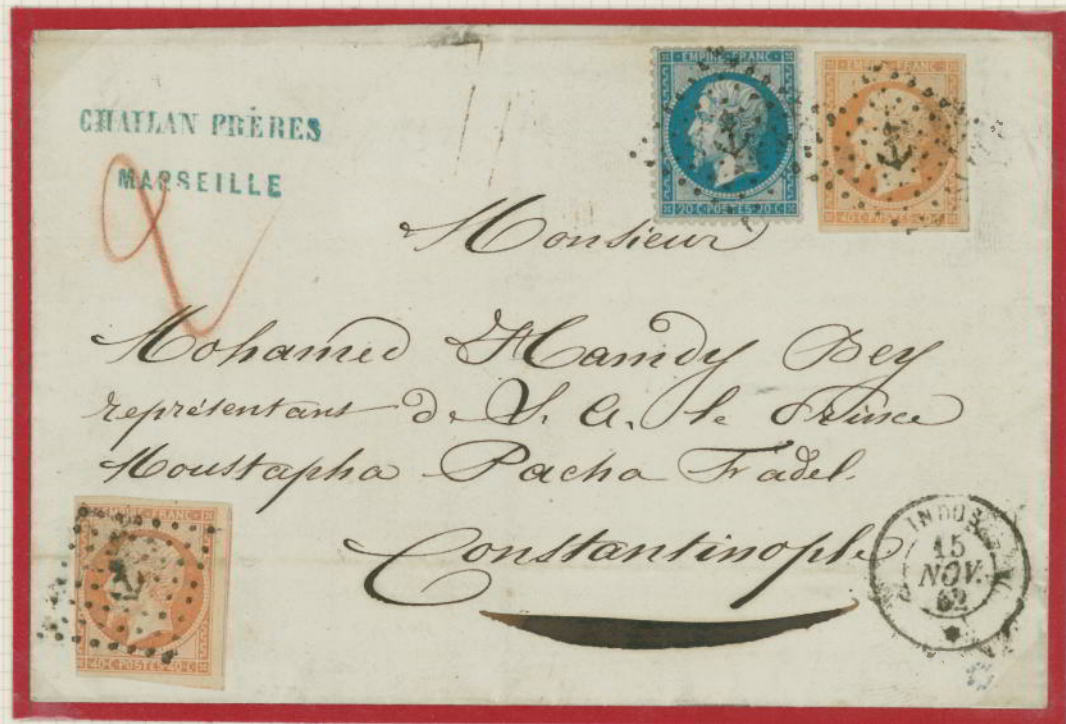 CHAILAN FRÈRES
MARSEILLE
2
EMPIRE FRANC
20·C·POSTES·20·C
EMPIRE FRANC
40·C·POSTES·40·C
Monsieur
Mohamed Hamdy Bey
représentant de S. A. le Prince
Moustapha Pacha Fadel.
Constantinople
EMPIRE FRANC
40·C·POSTES·40·C
INDUS
15
NOV.
62